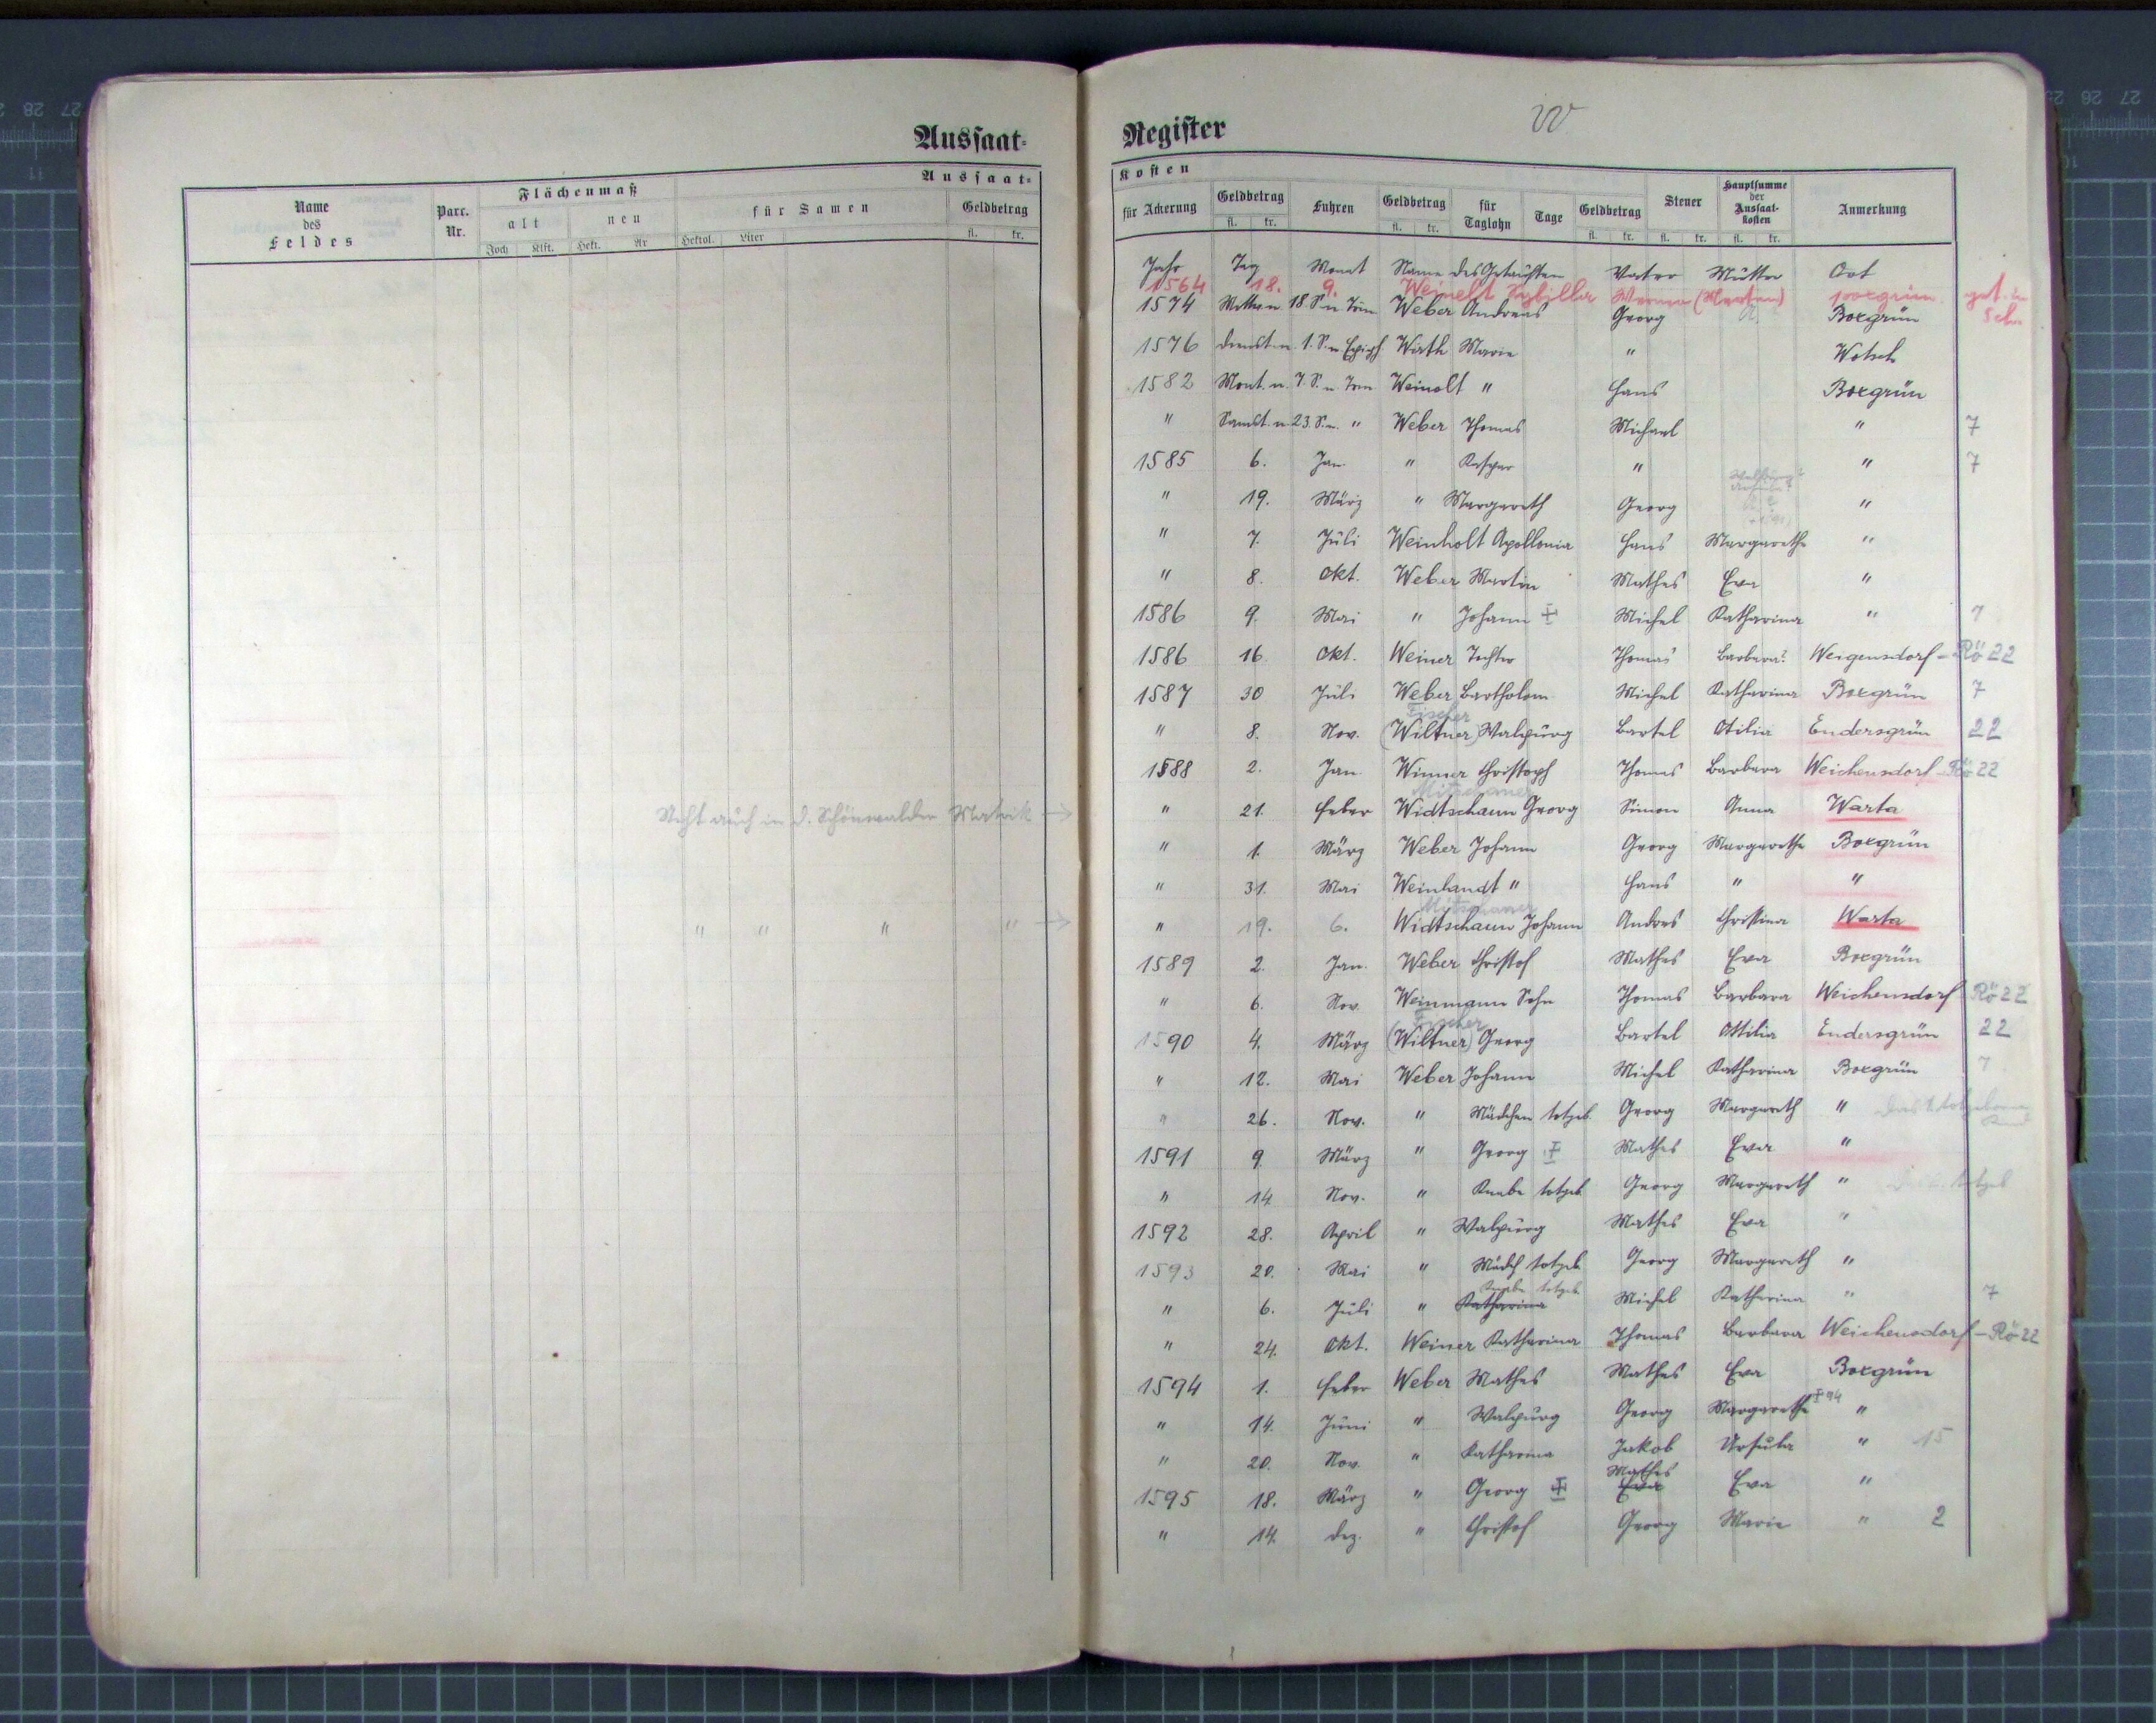 Aussaat-
Name des Feldes
Parc. Nr.
Flächenmaß
alt
neu
Joch Klft. Hekt. Ar
Aussaat-
für Samen
Hektol. Liter
Geldbetrag
fl. kr.
Nicht auch in d. Schönwalder Matrik →
" " " " →
Register
W
Kosten
für Ackerung
Geldbetrag
fl. kr.
Fuhren
Geldbetrag
fl. kr.
für Taglohn
Tage
Geldbetrag
fl. kr.
Steuer
fl. kr.
Hauptsumme der Aussaat-kosten
fl. kr.
Anmerkung
Jahr Tag Monat Name des Getauften Vater Mutter Ort
1564 18. 9. Weinelt Sybilla (Merten)
1574 18 S. n. Trin Weber Andreas Georg Boxgrün
1576 Dienst. n. 1. S. n. Epiph Wirth Marie " Wotsch
1582 Mont. n. 7. S. n. Trin Weinolt " Hans Boxgrün
" Samst. n. 23. S. n. " Weber Thomas Michael " 7
1585 6. Jan. " Kaspar " " 7
" 19. März " Margareth Georg "
" 7. Juli Weinholt Apollonia Hans Margarethe "
" 8. Okt. Weber Martin Mathes Eva "
1586 9. Mai " Johann ‡ Michel Katharina " 7
1586 16 Okt. Weiner Tochter Thomas Barbara? Weigensdorf - Rö 22
1587 30 Juli Weber Bartholom Michel Katharina Boxgrün 7
Fischer
" 8. Nov. (Wiltner) Walpurg Bartel Otilia Endersgrün 22
1588 2. Jan. Winner Christoph Thomas Barbara Weichensdorf - Rö 22
Mitschauer
" 21. Feber Widtschaun Georg Simon Anna Warta
" 1. März Weber Johann Georg Margarethe Boxgrün
" 31. Mai Weinlandt " Hans " "
Mitschauer
" 19. 6. Widtschaun Johann Andres Christina Warta
1589 2. Jan. Weber Christof Mathes Eva Boxgrün
" 6. Nov. Weinmann Sohn Thomas Barbara Weichensdorf Rö 22
Fischer
1590 4. März (Wiltner) Georg Bartel Ottilia Endersgrün 22
" 12. Mai Weber Johann Michel Katharina Boxgrün 7
" 26. Nov. " Mädchen totgeb. Georg Margareth "
1591 9. März " Georg ‡ Mathes Eva "
" 14 Nov. " Knabe totgeb. Georg Margareth " totgeb
1592 28. April " Walpurg Mathes Eva "
1593 20. Mai " Mädch totgeb. Georg Margareth "
Knabe totgeb.
" 6. Juli " Katharina Michel Katharina " 7
" 24. Okt. Weiner Katharina Thomas Barbara Weichensdorf - Rö 22
1594 1. Feber Weber Mathes Mathes Eva Boxgrün
" 14. Juni " Walpurg Georg Margarethe ‡ 94 "
" 20. Nov. " Katharina Jakob Ursula " 15
Mathes
1595 18. März " Georg ‡ Eva Eva "
" 14. Dez. " Christof Georg Marie " 2